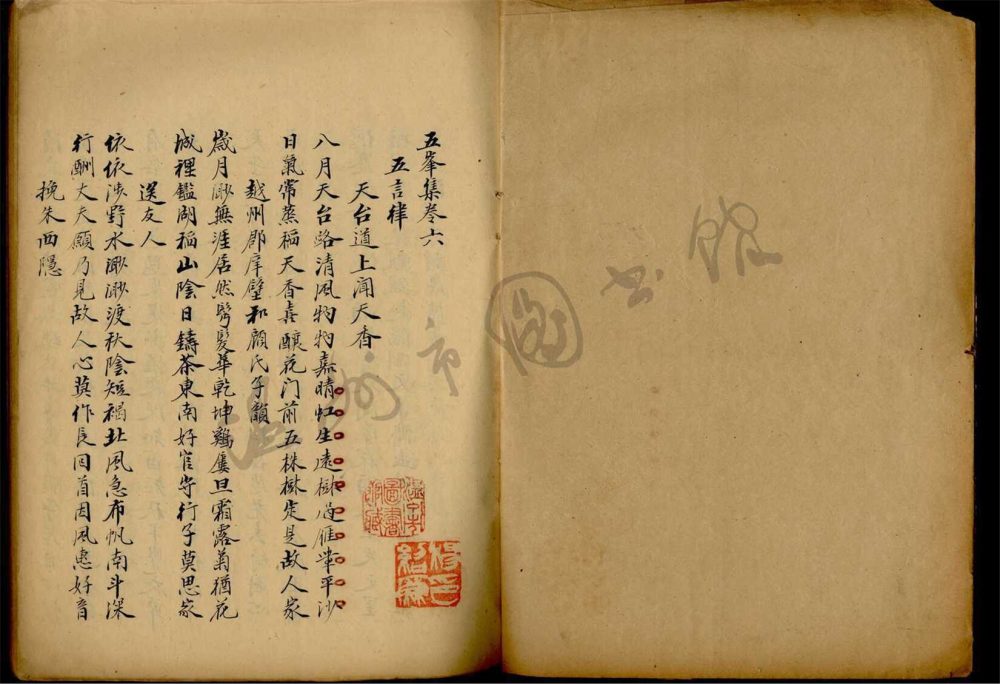 五峯集卷六
五言律
天台道上聞天香
八月天台路清風物物嘉晴虹生遠樹過雁帶平沙
日氣常蒸稻天香喜釀花門前五株樹定是故人家
越州郡庠壁和顧氏子韻
歲月渺無涯居然鬢髮華乾坤鷄屢旦霜露菊猶花
城裡鑑湖稻山陰日鑄茶東南好官守行子莫思家
送友人
依依涉野水渺渺渡秋陰短褐北風急布帆南斗深
行酬丈夫願乃見故人心莫作長回首因風惠好音
挽朱西隱
溫州市圖書館
溫州市圖書館藏
楊紹廉印